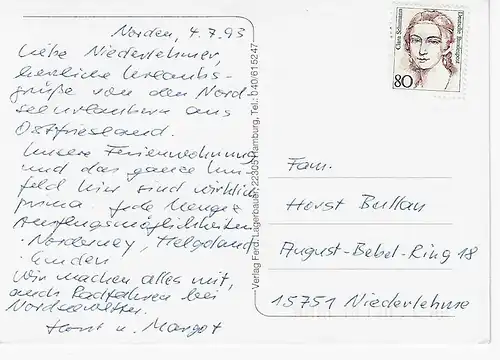 Norden, 4.7.93
Liebe Niederlehmer,
herzliche Urlaubs-
grüße von den Nord-
seeurlaubern aus
Ostfriesland.
Unsere Ferienwohnung
und das ganze Um-
feld hier sind wirklich
prima. Jede Menge
Ausflugsmöglichkeiten
· Norderney, Helgoland
· Emden
Wir machen alles mit,
auch Radfahren bei
Nordseewetter.
Horst u. Margot
Verlag Ferd. Lagerbauer, 22305 Hamburg, Tel.: 040/615247
Clara Schumann
Deutsche Bundespost
80
Fam.
Horst Bullan
August-Bebel-Ring 18
15751 Niederlehme